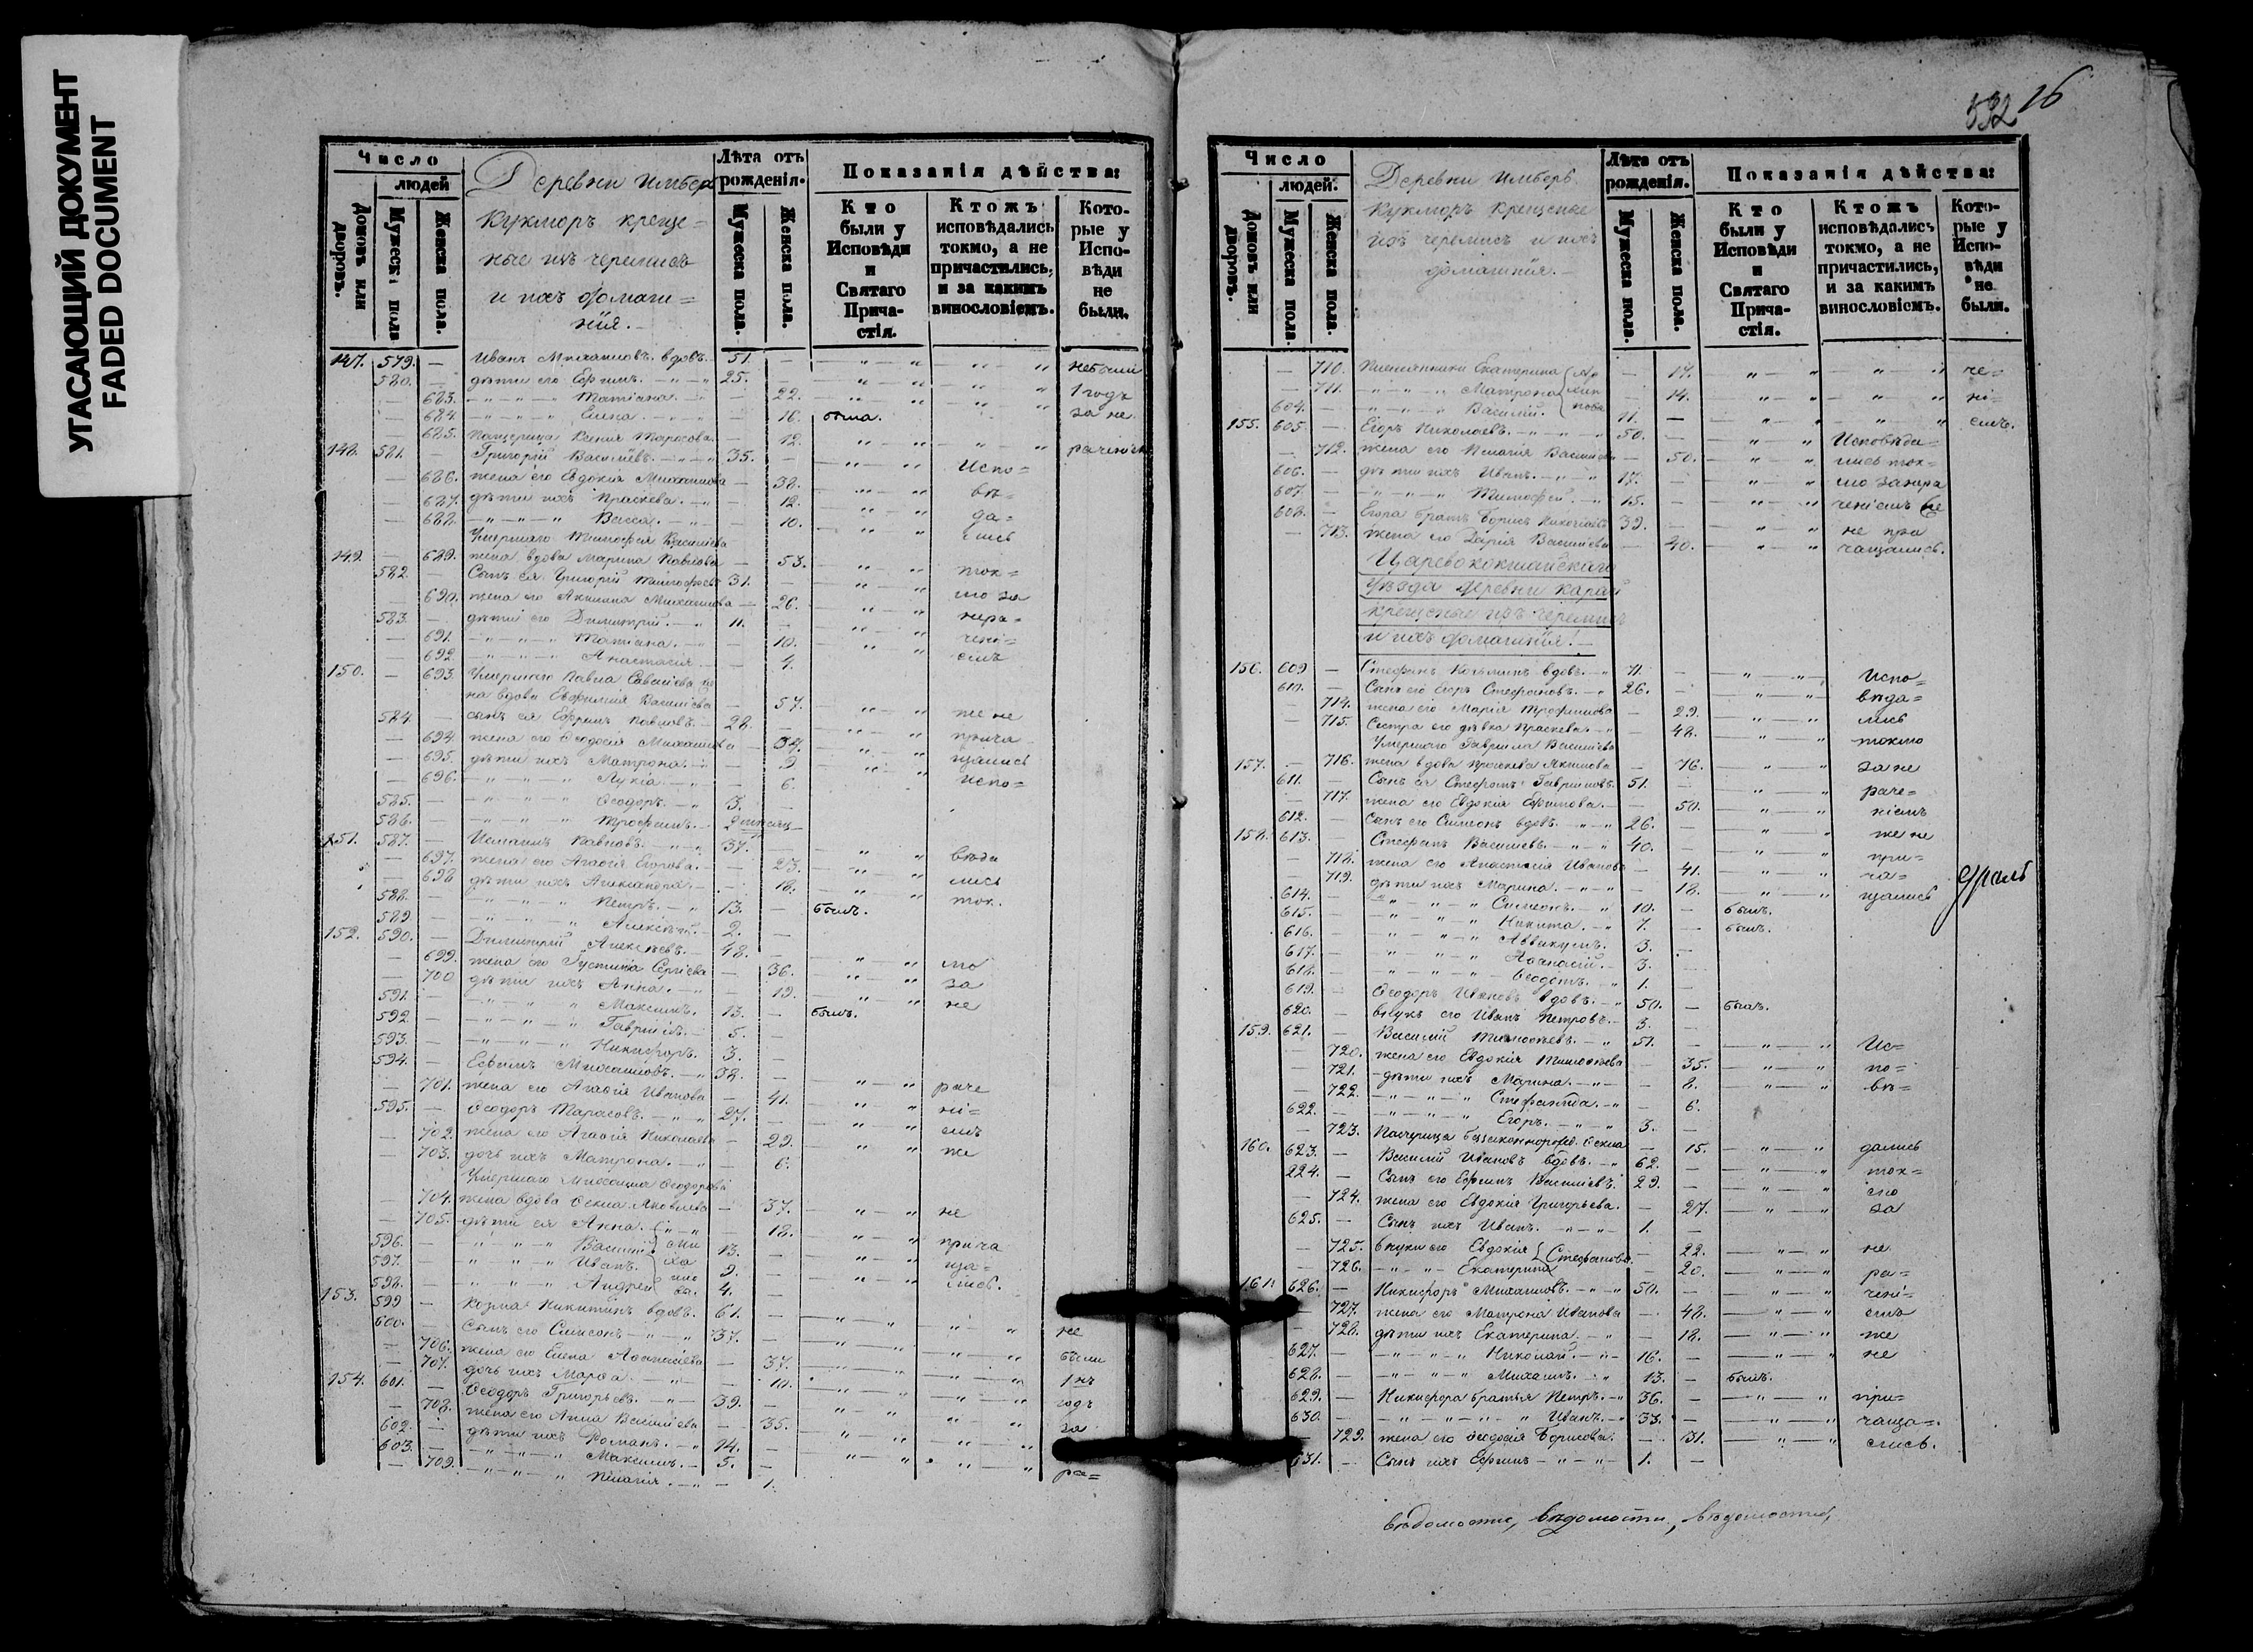 УГАСАЮЩИЙ ДОКУМЕНТ
FADED DOCUMENT
532 16
Число
людей
Домовъ или дворовъ.
Мужеска пола
Женска пола.
Деревни Имберь
Кукморъ креще=
ные изъ черемисъ
и ихъ домаш=
нія.
Лѣта отъ рожденія.
Мужеска пола.
Женска пола.
Показанія дѣйства:
Кто были у Исповѣди и Святаго Прича-стія.
Ктожъ исповѣдались токмо, а не причастились, и за какимъ винословіемъ.
Кото-рые у Испо-вѣди не были.
147. 579. — Иванъ Михаиловъ вдовъ. 51. — небыли
580. — дѣти его Ефимъ. 25. —
— 683. Татіана. — 22. 1 годъ
— 684. Елена. — 16. была. за не
— 685. Ксенія Тарасова. — 12.
148. 581. — Григорій Васильевъ. 35. — раченіемъ
— 686. жена его Евдокія Михаилова — 38. Испо=
— 687. дѣти ихъ Праскева. — 12. вѣ=
— 688. Васса. — 10. да=
Умершаго Тимофея Васильева лись
149. — 689. жена вдова Марина Павлова — 53. ток=
582. — Сынъ ея Григорій Тимофеевъ 31. —
— 690. жена его Акилина Михаилова — 26. мо за
583. — дѣти его Димитрій. 11. — нера=
— 691. Татіана. — 10. чені=
— 692. Анастасія — 4. емъ
150. — 693. Умершаго Павла Савельева же
на вдова Евфимія Васильева — 57.
584. — сынъ ея Ефимъ Павловъ. 28. — же не
— 694. жена его Ѳеодосія Михаилова — 34. прича
— 695. дѣти ихъ Матрона. — 9 щались
— 696. Лукія — 6. Испо=
585. — Ѳеодоръ. 3. —
586. — Трофимъ.
151. 587. — Павловъ. 37. —
— 697. жена его Агафія Егорова. — 23. вѣда
— 698 дѣти ихъ Александра. — 18. лись
588. — Петръ. 13. — былъ. ток.
589 — Алексѣй. 2. —
152. 590. — Димитрій Алексѣевъ. 48. —
— 699. жена его Густина Сергіева — 36. мо
— 700 дѣти ихъ Анна. — 19. за
591. — Максимъ. 13. — былъ. не
592 — Гавріилъ. 5. —
593. — Никифоръ. 3. —
594. — Ефимъ Михаиловъ. 38. —
— 701. жена его Агафія Иванова — 41. раче
595. — Ѳеодоръ Тарасовъ. 27. — ні=
— 702. жена его Агафія Николаева — 29. емъ
— 703. дочь ихъ Матрона. — 6. же
Умершаго Михаила Ѳеодорова
— 704. жена вдова Ѳекла Яковлева — 37. не
— 705. дѣти ея Анна. — 18.
596. — Василій 13. — прича
597. — Иванъ. 9. — ща=
598. — Андрей 4. — лись.
153. 599 — Козма Никитинъ вдовъ. 61. —
600. — Сынъ его Симеонъ 37. — не
— 706. жена его Елена Аѳанасіева — 37. были
— 707. дочь ихъ Марѳа. — 10. 1нъ
154. 601. — Ѳеодоръ Григорьевъ. 39. — годъ
— 708. жена его Анна Васильева — 35. за
602. — дѣти ихъ Романъ. 14. —
603. — Максимъ. 5. —
— 709. Пелагія. — 1. ра=
Число
людей.
Домовъ или дворовъ.
Мужеска пола
Женска пола.
Деревни Имберь
Кукморъ Крещеные
изъ черемисъ и ихъ
домашнія.
Лѣта отъ рожденія.
Мужеска пола.
Женска пола.
Показанія дѣйства:
Кто были у Исповѣди и Святаго Прича-стія.
Ктожъ исповѣдались токмо, а не причастились, и за какимъ винословіемъ.
Кото-рые у Испо-вѣди не были.
— 710. Племянники Екатерина — 17. че=
— 711. Матрона — 14. ні=
604. — Василій. 11. — емъ.
155. 605. — Егоръ Николаевъ. 50. — Исповѣда=
— 712. жена его Пелагія Васильева — 50. лись ток=
606. — дѣти ихъ Иванъ. 17. — мо занера
607. — Тимофей. 15. — ченіемъ же
608. — Егора братъ Борисъ Николаевъ 39. — не при
— 713. жена его Дарія Васильева — 40. чащались.
Царевококшайскаго
уѣзда деревни Карай
крещеные изъ черемисъ
и ихъ домашнія!
156. 609 — Стефанъ Козминъ вдовъ. 71. — Испо=
610. — Сынъ его Егоръ Стефановъ. 26. — вѣда=
— 714. жена его Марія Трофимова — 29. лись
— 715. Сестра его дѣвка Праскева. — 48. токмо
Умершаго Гавріила Васильева
157. — 716. жена вдова Праскева Якимова — 76. за не
611. — Сынъ ея Стефанъ Гавриловъ. 51. — раче=
— 717. жена его Евдокія Ефимова. — 50. ніемъ
612. — Сынъ его Симеонъ вдовъ. 26. — же не
158. 613. — Стефанъ Васильевъ. 40. — при=
— 718. жена его Анастасія Иванова — 41. ча=
— 719. дѣти ихъ Марина. — 18. щались
614. — Симеонъ. 10. — былъ.
615. — Никита. 7. — былъ.
616. — Аввакумъ. 3. —
617. — Аѳанасій. 3. —
618. — Ѳеодотъ. 1. —
619. — Ѳеодоръ Ивановъ вдовъ. 50. — былъ.
620. — внукъ его Иванъ Петровъ. 3. —
159. 621. — Василій Тимоѳеевъ. 51. — Ис=
— 720. жена его Евдокія Тимоѳеева — 35. по=
— 721. дѣти ихъ Марина. — 8. вѣ=
— 722. Стефанида. — 6.
622. — Егоръ. 3. —
— 723. Ѳекла — 15. дались
160. 623. — Василій Ивановъ вдовъ. 62. — ток=
224. — Сынъ его Ефимъ Васильевъ. 29. — мо
— 724. жена его Евдокія Григорьева. — 27. за
625. — Сынъ ихъ Иванъ. 1. —
— 725. внуки его Евдокія Стефановы — 22. не
— 726. Екатерина — 20. ра=
161. 626. — Никифоръ Михаиловъ. 50. — чені=
— 727. жена его Матрона Иванова — 48. емъ
— 728. дѣти ихъ Екатерина. — 18. же
627. — Николай. 16. — не
628. — Михаилъ. 13. — былъ.
629. — Никифора братья Петръ. 36. — при=
630. — Иванъ. 33. — чаща=
— 729. жена его Ѳеодосія Борисова. — 31. лись.
631. — Сынъ ихъ Ефимъ 1. —
вѣдомости, вѣдомости, вѣдомости,